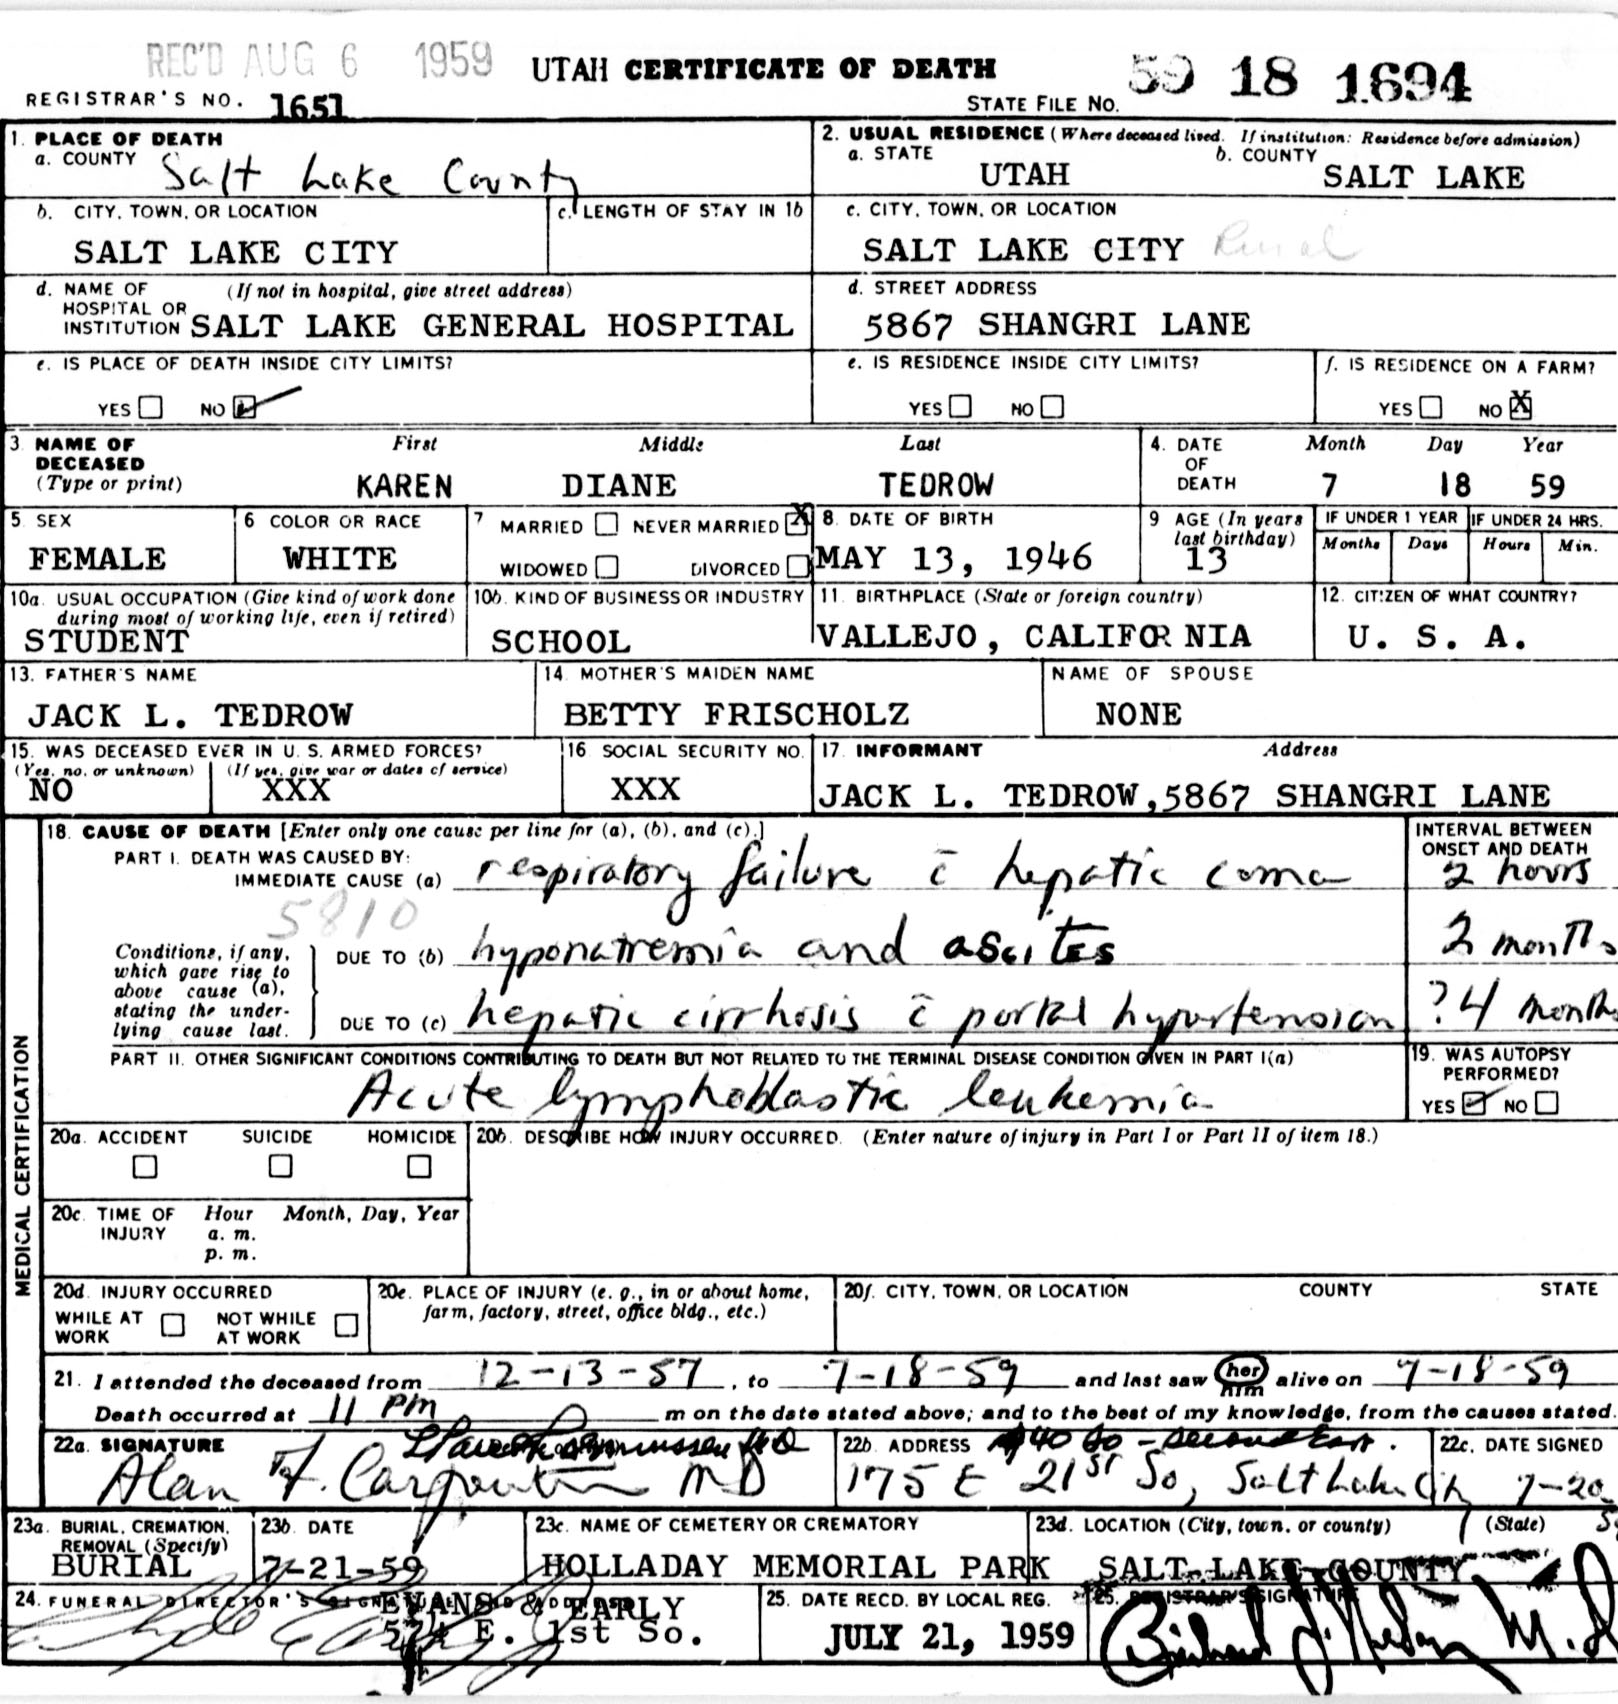 REC'D AUG 6 1959 UTAH CERTIFICATE OF DEATH 59 18 1694
REGISTRAR'S NO. 1651 STATE FILE NO.
1. PLACE OF DEATH
a. COUNTY Salt Lake County
2. USUAL RESIDENCE (Where deceased lived. If institution: Residence before admission)
a. STATE UTAH b. COUNTY SALT LAKE
b. CITY, TOWN, OR LOCATION
SALT LAKE CITY
c. LENGTH OF STAY IN 1b
c. CITY, TOWN, OR LOCATION
SALT LAKE CITY Rural
d. NAME OF (If not in hospital, give street address)
HOSPITAL OR
INSTITUTION SALT LAKE GENERAL HOSPITAL
d. STREET ADDRESS
5867 SHANGRI LANE
e. IS PLACE OF DEATH INSIDE CITY LIMITS?
YES NO
e. IS RESIDENCE INSIDE CITY LIMITS?
YES NO
f. IS RESIDENCE ON A FARM?
YES NO X
3. NAME OF DECEASED (Type or print) First Middle Last
KAREN DIANE TEDROW
4. DATE OF DEATH Month Day Year
7 18 59
5. SEX
FEMALE
6 COLOR OR RACE
WHITE
7 MARRIED NEVER MARRIED X
WIDOWED DIVORCED
8. DATE OF BIRTH
MAY 13, 1946
9 AGE (In years last birthday)
13
IF UNDER 1 YEAR IF UNDER 24 HRS.
Months Days Hours Min.
10a. USUAL OCCUPATION (Give kind of work done
during most of working life, even if retired)
STUDENT
10b. KIND OF BUSINESS OR INDUSTRY
SCHOOL
11. BIRTHPLACE (State or foreign country)
VALLEJO, CALIFORNIA
12. CITIZEN OF WHAT COUNTRY?
U. S. A.
13. FATHER'S NAME
JACK L. TEDROW
14. MOTHER'S MAIDEN NAME
BETTY FRISCHOLZ
NAME OF SPOUSE
NONE
15. WAS DECEASED EVER IN U. S. ARMED FORCES?
(Yes, no. or unknown) (If yes, give war or dates of service)
NO XXX
16. SOCIAL SECURITY NO.
XXX
17. INFORMANT Address
JACK L. TEDROW,5867 SHANGRI LANE
MEDICAL CERTIFICATION
18. CAUSE OF DEATH [Enter only one cause per line for (a), (b), and (c).]
INTERVAL BETWEEN
ONSET AND DEATH
PART I. DEATH WAS CAUSED BY:
IMMEDIATE CAUSE (a) respiratory failure c̄ hepatic coma 2 hours
5810
Conditions, if any,
which gave rise to
above cause (a),
stating the under-
lying cause last.
DUE TO (b) hyponatremia and ascites 2 months
DUE TO (c) hepatic cirrhosis c̄ portal hypertension ? 4 months
PART II. OTHER SIGNIFICANT CONDITIONS CONTRIBUTING TO DEATH BUT NOT RELATED TO THE TERMINAL DISEASE CONDITION GIVEN IN PART I(a)
Acute lymphoblastic leukemia
19. WAS AUTOPSY
PERFORMED?
YES NO
20a. ACCIDENT SUICIDE HOMICIDE
20b. DESCRIBE HOW INJURY OCCURRED. (Enter nature of injury in Part I or Part II of item 18.)
20c. TIME OF INJURY Hour Month, Day, Year
a. m.
p. m.
20d. INJURY OCCURRED
WHILE AT WORK NOT WHILE AT WORK
20e. PLACE OF INJURY (e. g., in or about home,
farm, factory, street, office bldg., etc.)
20f. CITY, TOWN, OR LOCATION COUNTY STATE
21. I attended the deceased from 12-13-57, to 7-18-59 and last saw her him alive on 7-18-59
Death occurred at 11 PM m on the date stated above; and to the best of my knowledge, from the causes stated.
22a. SIGNATURE
Alan F. Carpenter MD
22b. ADDRESS
175 E 21st So, Salt Lake City
22c. DATE SIGNED
7-20
23a. BURIAL, CREMATION,
REMOVAL (Specify)
BURIAL
23b. DATE
7-21-59
23c. NAME OF CEMETERY OR CREMATORY
HOLLADAY MEMORIAL PARK
23d. LOCATION (City, town, or county) (State)
SALT LAKE COUNTY
24. FUNERAL DIRECTOR'S SIGNATURE AND ADDRESS
EVANS & EARLY
574 E. 1st So.
25. DATE RECD. BY LOCAL REG.
JULY 21, 1959
REGISTRAR'S SIGNATURE
M.D.